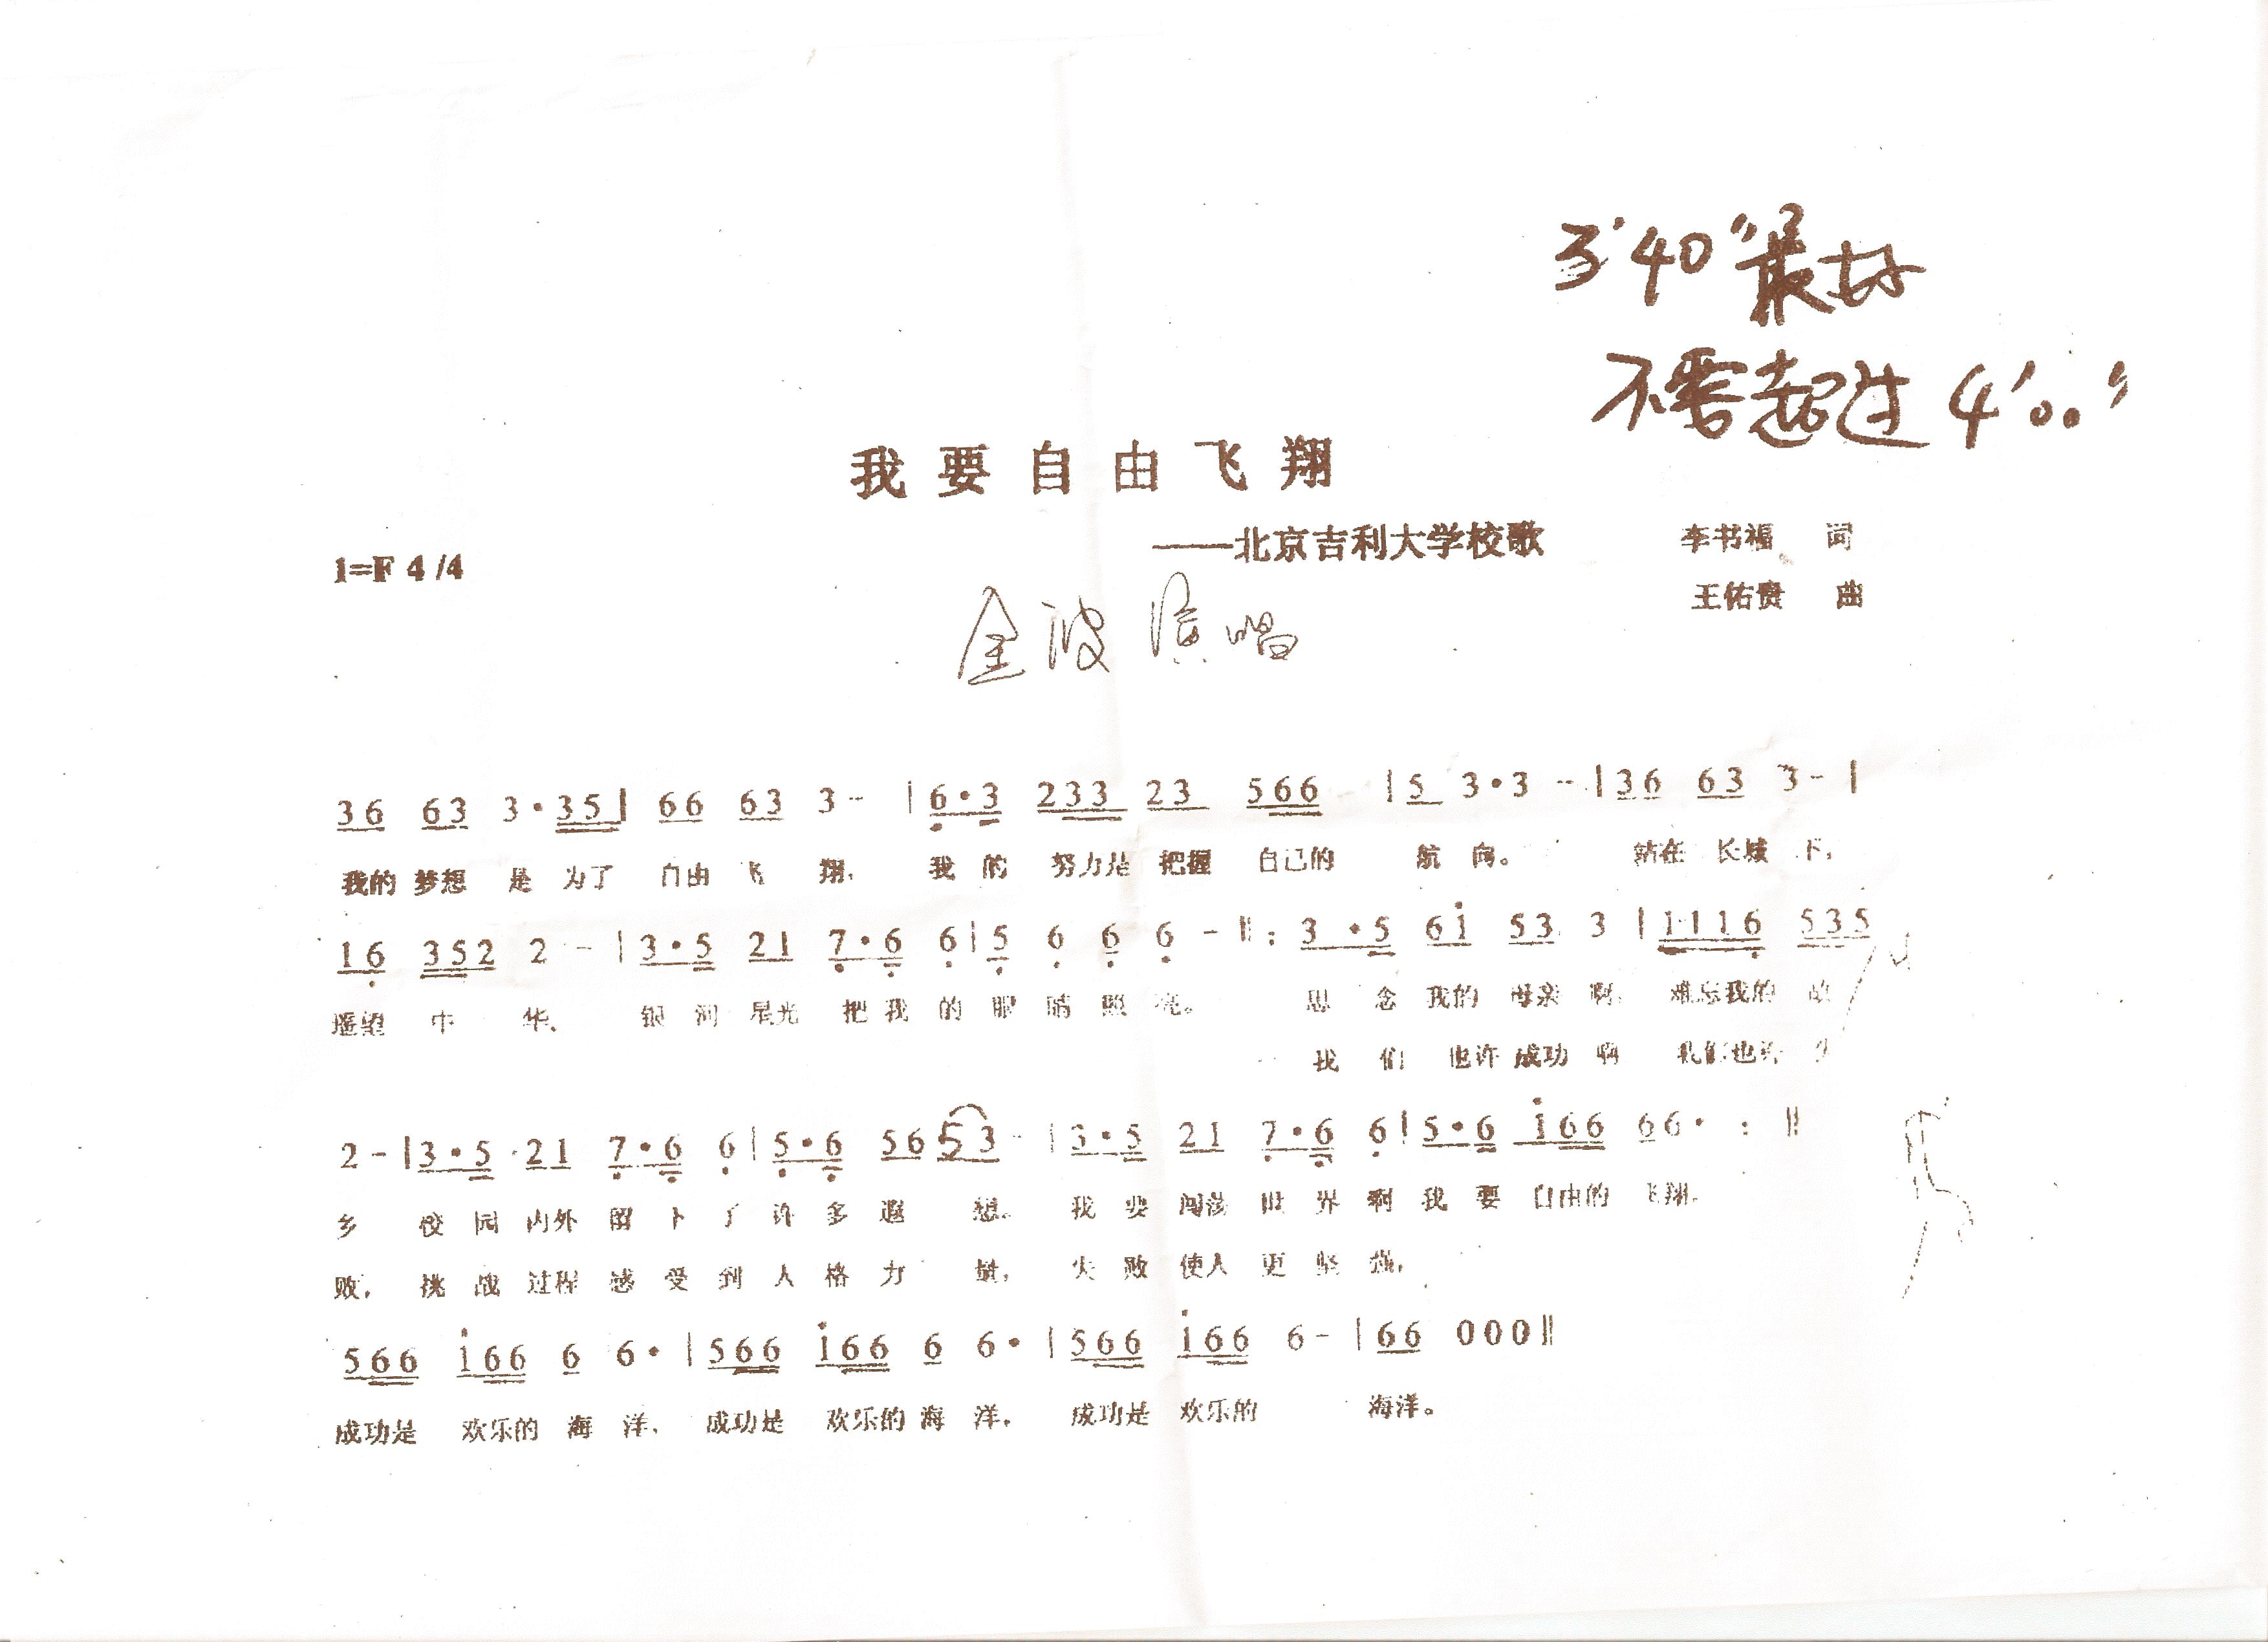 3'40"最好
不要超过4'00"
我要自由飞翔
——北京吉利大学校歌 李书福 词
1=F 4/4 王佑贵 曲
金波演唱
36 63 3·35| 66 63 3- |6·3 233 23 566 |5 3·3 -|36 63 3-|
我的梦想 是 为了 自由 飞 翔, 我 的 努力是 把握 自己的 航 向。 站在 长城 下,
16 352 2 - |3·5 21 7·6 6|5 6 6 6 -‖: 3·5 6i 53 3 |1·116 535
遥望 中 华、 银 河 星光 把 我 的 眼 睛 照 亮。 思 念 我的 母亲 啊, 难忘我的 故
我 们 也许 成功 啊 我们也许 失
2-|3·5 21 7·6 6|5·6 56 53 - |3·5 21 7·6 6|5·6 i66 66· :‖
乡 校 园 内外 留 下 了 许 多 遐 想。 我 要 闯荡 世 界 啊 我 要 自由的 飞翔。
败, 挑 战 过程 感 受 到 人 格 力 量, 失 败 使人 更 坚 强,
566 i66 6 6· |566 i66 6 6· |566 i66 6- |66 000‖
成功是 欢乐的 海 洋, 成功是 欢乐的 海 洋, 成功是 欢乐的 海洋。